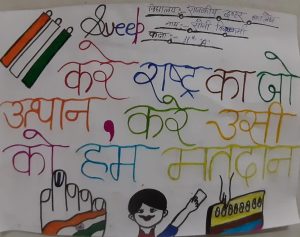 Sweep
विद्यालय:- राजकीय
नाम:-
कक्षा:- 11th 'A'
करे राष्ट्र का जो
उत्थान, करे उसी
को हम मतदान